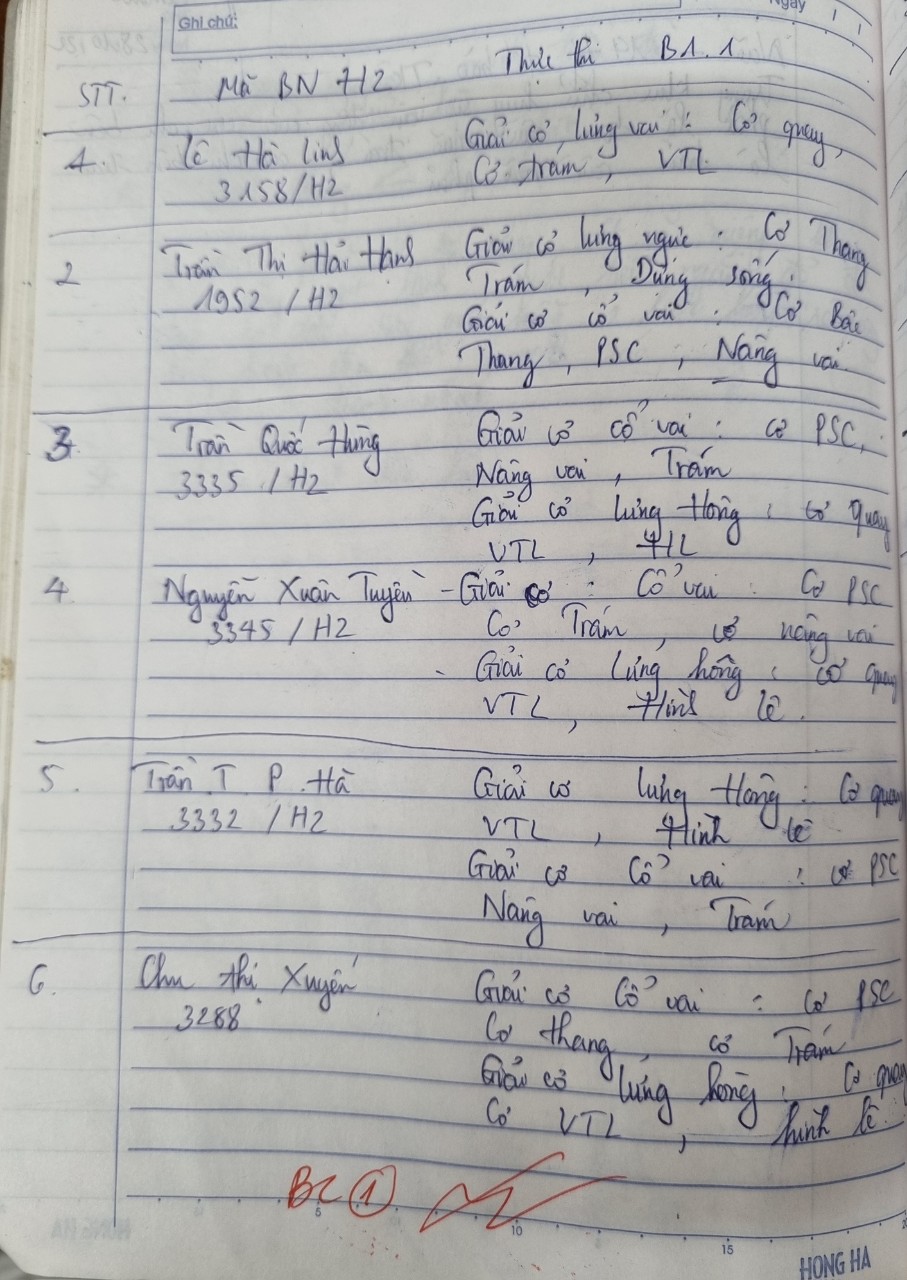 Ghi chú:
Ngày
STT. Mã BN H2 Thức thi B1.1
1. Lê Hà Linh Giải cơ lưng vai : Cơ quay,
3158/H2 Cơ trám, VTL
2 Trần Thị Hải Hạnh Giải cơ lưng ngực : Cơ Thang
1952 /H2 Trám, Dựng sống.
Giải cơ cổ vai : Cơ Bậc
Thang, PSC, Nâng vai
3. Trần Quốc Hưng Giải cơ cổ vai : cơ PSC,
3335 /H2 Nâng vai, Trám
Giải cơ lưng Hông : cơ quay
VTL, HL
4. Nguyễn Xuân Tuyên - Giải cơ : Cổ vai : Cơ PSC
3345 /H2 Cơ Trám, cơ nâng vai
- Giải cơ lưng hông : cơ quay
VTL, Hình lê.
5. Trần T P. Hà Giải cơ lưng Hông : Cơ quay
3332 /H2 VTL, Hình lê
Giải cơ Cổ vai : cơ PSC
Nâng vai, Trám
6. Chu thị Xuyến Giải cơ Cổ vai : cơ PSC
3288 Cơ thang, cơ Trám
Giải cơ lưng hông : Cơ quay
Cơ VTL, hình lê.
BC 1
5 10 15
HONG HA